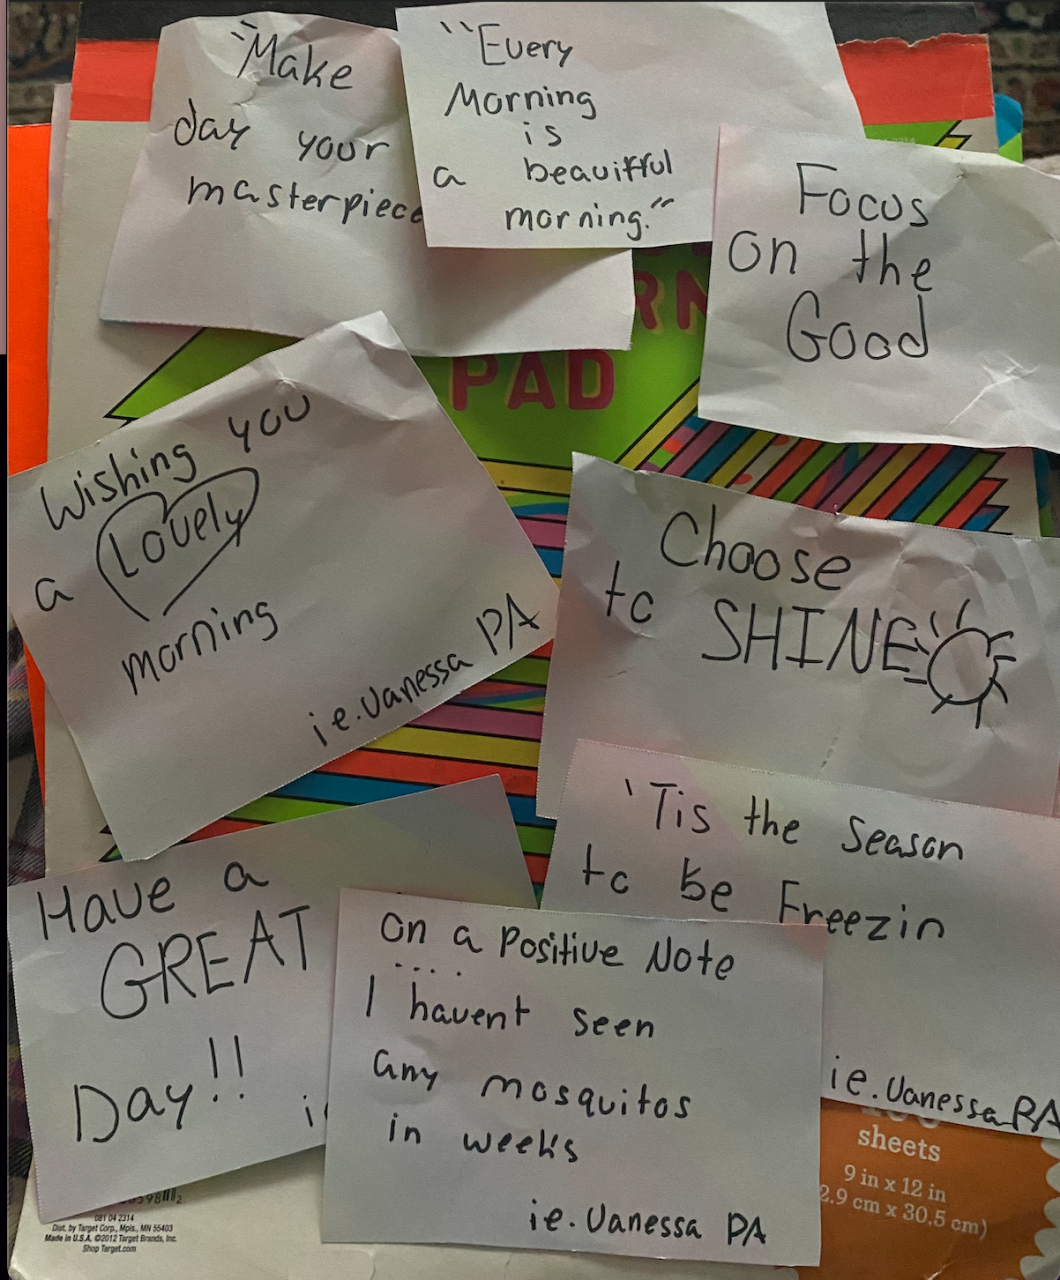 “Make
day your
masterpiece
“Every
Morning
is
a beauitful
morning.”
Focus
on the
Good
PAD
Wishing you
a Lovely
morning
ie. Vanessa PA
Choose
to SHINE
'Tis the Season
to be Freezin
ie. Vanessa PA
Have a
GREAT
Day!!
On a Positive Note
....
I havent seen
any mosquitos
in weeks
ie. Vanessa PA
sheets
9 in x 12 in
2.9 cm x 30.5 cm)
081 04 2314
Dist. by Target Corp., Mpls., MN 55403
Made in U.S.A. ©2012 Target Brands, Inc.
Shop Target.com